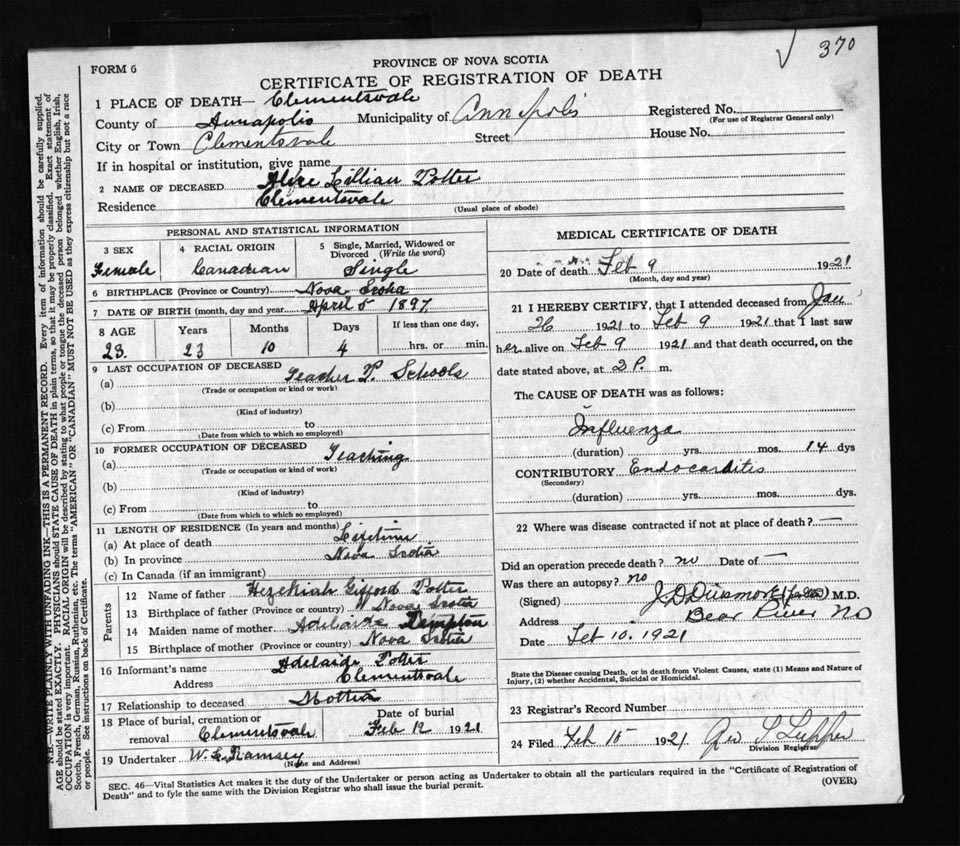 370
PROVINCE OF NOVA SCOTIA
FORM 6
CERTIFICATE OF REGISTRATION OF DEATH
1 PLACE OF DEATH— Clementsvale
County of Annapolis Municipality of Annapolis Registered No.
(For use of Registrar General only)
City or Town Clementsvale Street House No.
If in hospital or institution, give name
2 NAME OF DECEASED Alice Lillian Potter
Residence Clementsvale
(Usual place of abode)
PERSONAL AND STATISTICAL INFORMATION
3 SEX 4 RACIAL ORIGIN 5 Single, Married, Widowed or Divorced (Write the word)
Female Canadian Single
6 BIRTHPLACE (Province or Country) Nova Scotia
7 DATE OF BIRTH (month, day and year) April 5 1897
8 AGE Years Months Days If less than one day,
23. 23 10 4 hrs. or min.
9 LAST OCCUPATION OF DECEASED
(a) Teacher P. Schools
(Trade or occupation or kind or work)
(b)
(Kind of industry)
(c) From to
(Date from which to which so employed)
10 FORMER OCCUPATION OF DECEASED
(a) Teaching
(Trade or occupation or kind of work)
(b)
(Kind of industry)
(c) From to
(Date from which to which so employed)
11 LENGTH OF RESIDENCE (In years and months)
(a) At place of death Lifetime
(b) In province Nova Scotia
(c) In Canada (if an immigrant)
Parents
12 Name of father Hezekiah Gifford Potter
13 Birthplace of father (Province or country) Nova Scotia
14 Maiden name of mother Adelaide
15 Birthplace of mother (Province or country) Nova Scotia
16 Informant's name Adelaide Potter
Address Clementsvale
17 Relationship to deceased Mother
18 Place of burial, cremation or removal Clementsvale Date of burial Feb 12 1921
19 Undertaker W. L. Ramsey
(Name and Address)
MEDICAL CERTIFICATE OF DEATH
20 Date of death Feb 9 1921
(Month, day and year)
21 I HEREBY CERTIFY, that I attended deceased from Jan
26 1921 to Feb 9 1921 that I last saw
her alive on Feb 9 1921 and that death occurred, on the
date stated above, at 2 P. m.
The CAUSE OF DEATH was as follows:
Influenza
(duration) yrs. mos. 14 dys
CONTRIBUTORY Endocarditis
(Secondary)
(duration) yrs. mos. dys.
22 Where was disease contracted if not at place of death? —
Did an operation precede death? no Date of —
Was there an autopsy? no
(Signed) M.D.
Address Bear River NS
Date Feb 10. 1921
State the Disease causing Death, or in death from Violent Causes, state (1) Means and Nature of
Injury, (2) whether Accidental, Suicidal or Homicidal.
23 Registrar's Record Number
24 Filed Feb 15 1921
Division Registrar
SEC. 46—Vital Statistics Act makes it the duty of the Undertaker or person acting as Undertaker to obtain all the particulars required in the "Certificate of Registration of
Death" and to fyle the same with the Division Registrar who shall issue the burial permit.
(OVER)
N.B.—WRITE PLAINLY WITH UNFADING INK—THIS IS A PERMANENT RECORD. Every item of information should be carefully supplied.
AGE should be stated EXACTLY. PHYSICIANS should STATE CAUSE OF DEATH in plain terms, so that it may be properly classified. Exact statement of
OCCUPATION is very important. RACIAL ORIGIN will be described by stating to what people or tongue the deceased person belonged whether English, Irish,
Scotch, French, German, Russian, Ruthenian, etc. The terms "AMERICAN" OR "CANADIAN" MUST NOT BE USED as they express citizenship but not a race
or people. See instructions on back of Certificate.